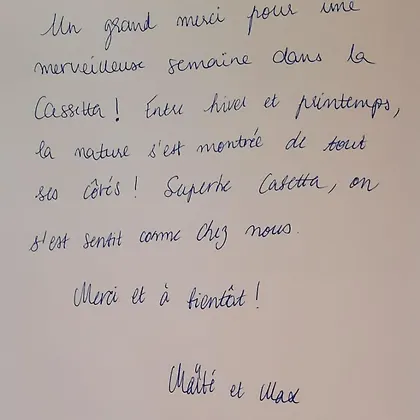 Un grand merci pour une
merveilleuse semaine dans la
Cassetta ! Entre hiver et printemps,
la nature s'est montrée de tout
ses côtés ! Superbe Casetta, on
s'est sentit comme chez nous.
Merci et à bientôt !
Maïté et Max